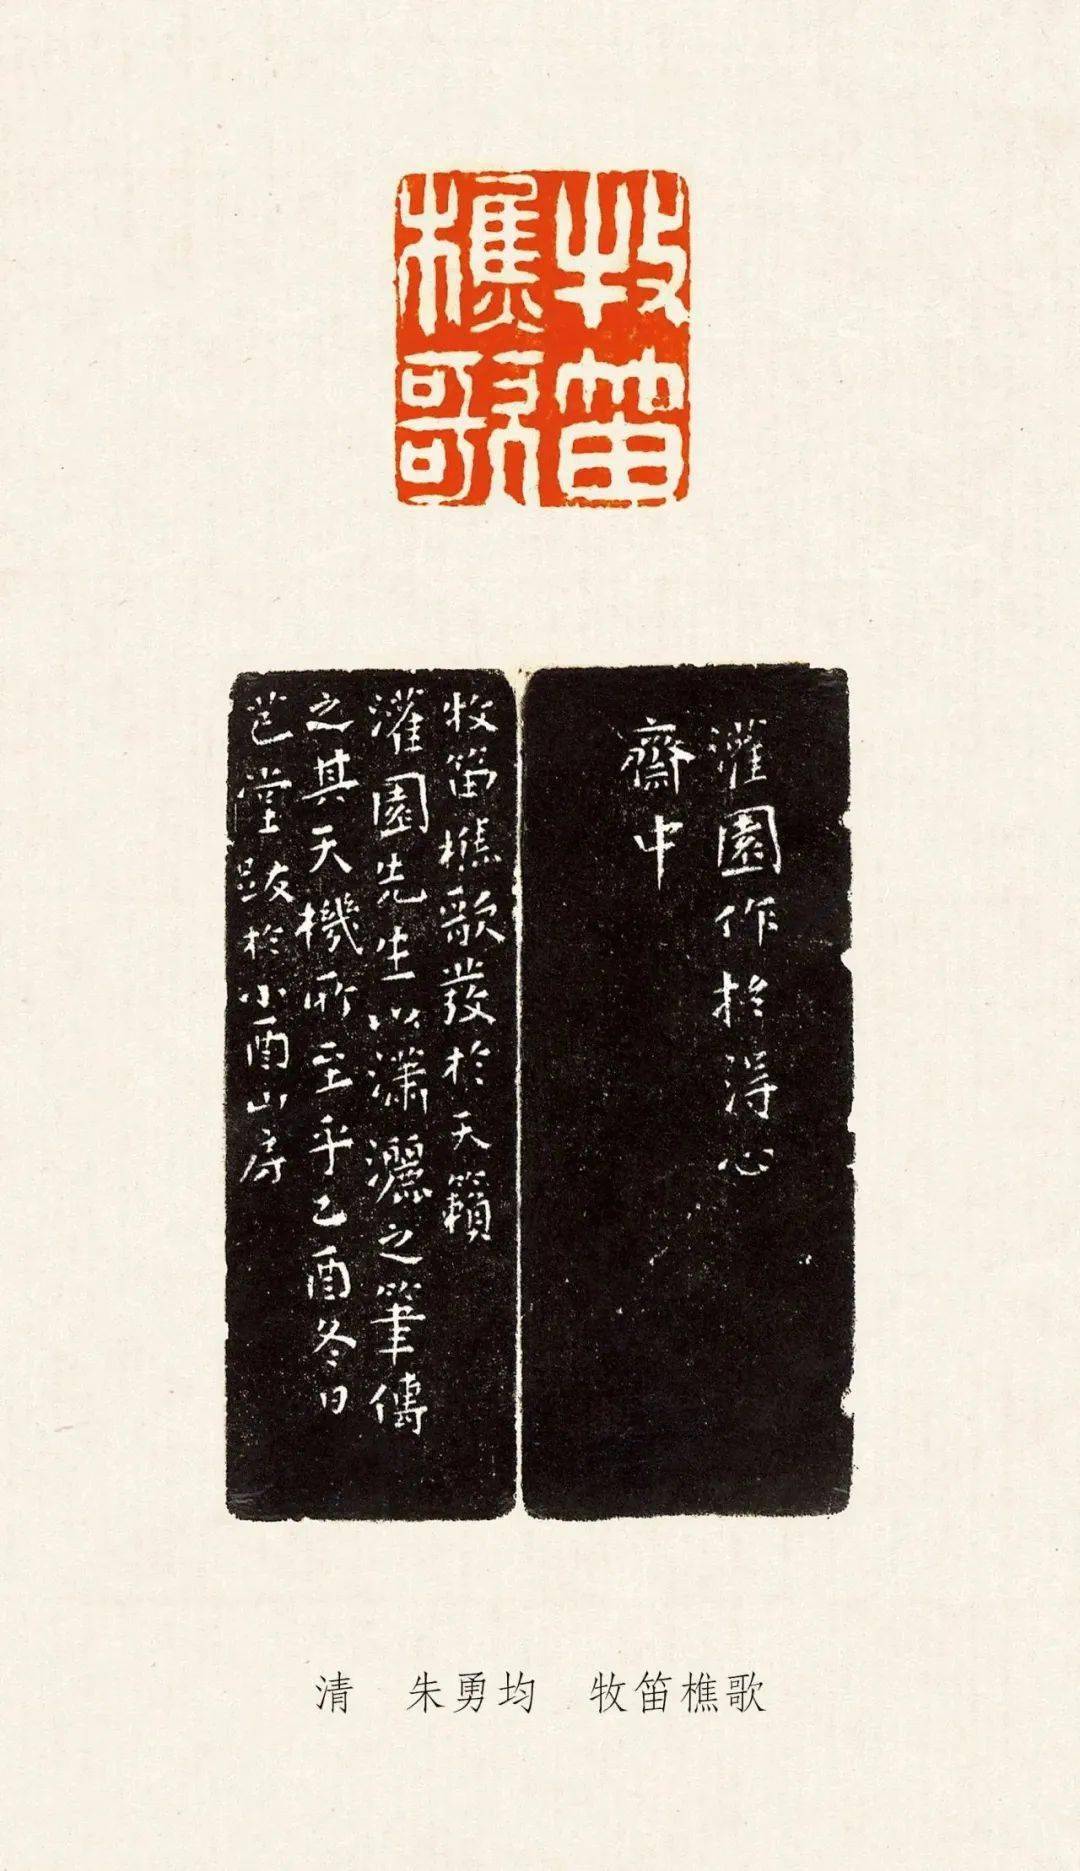 牧笛
樵歌
灌園作於得心
齋中
牧笛樵歌發於天籟
灌園先生以瀟灑之筆傳
之其天機所至乎乙酉冬日
芑堂跋於小酉山房
清　朱勇均　牧笛樵歌